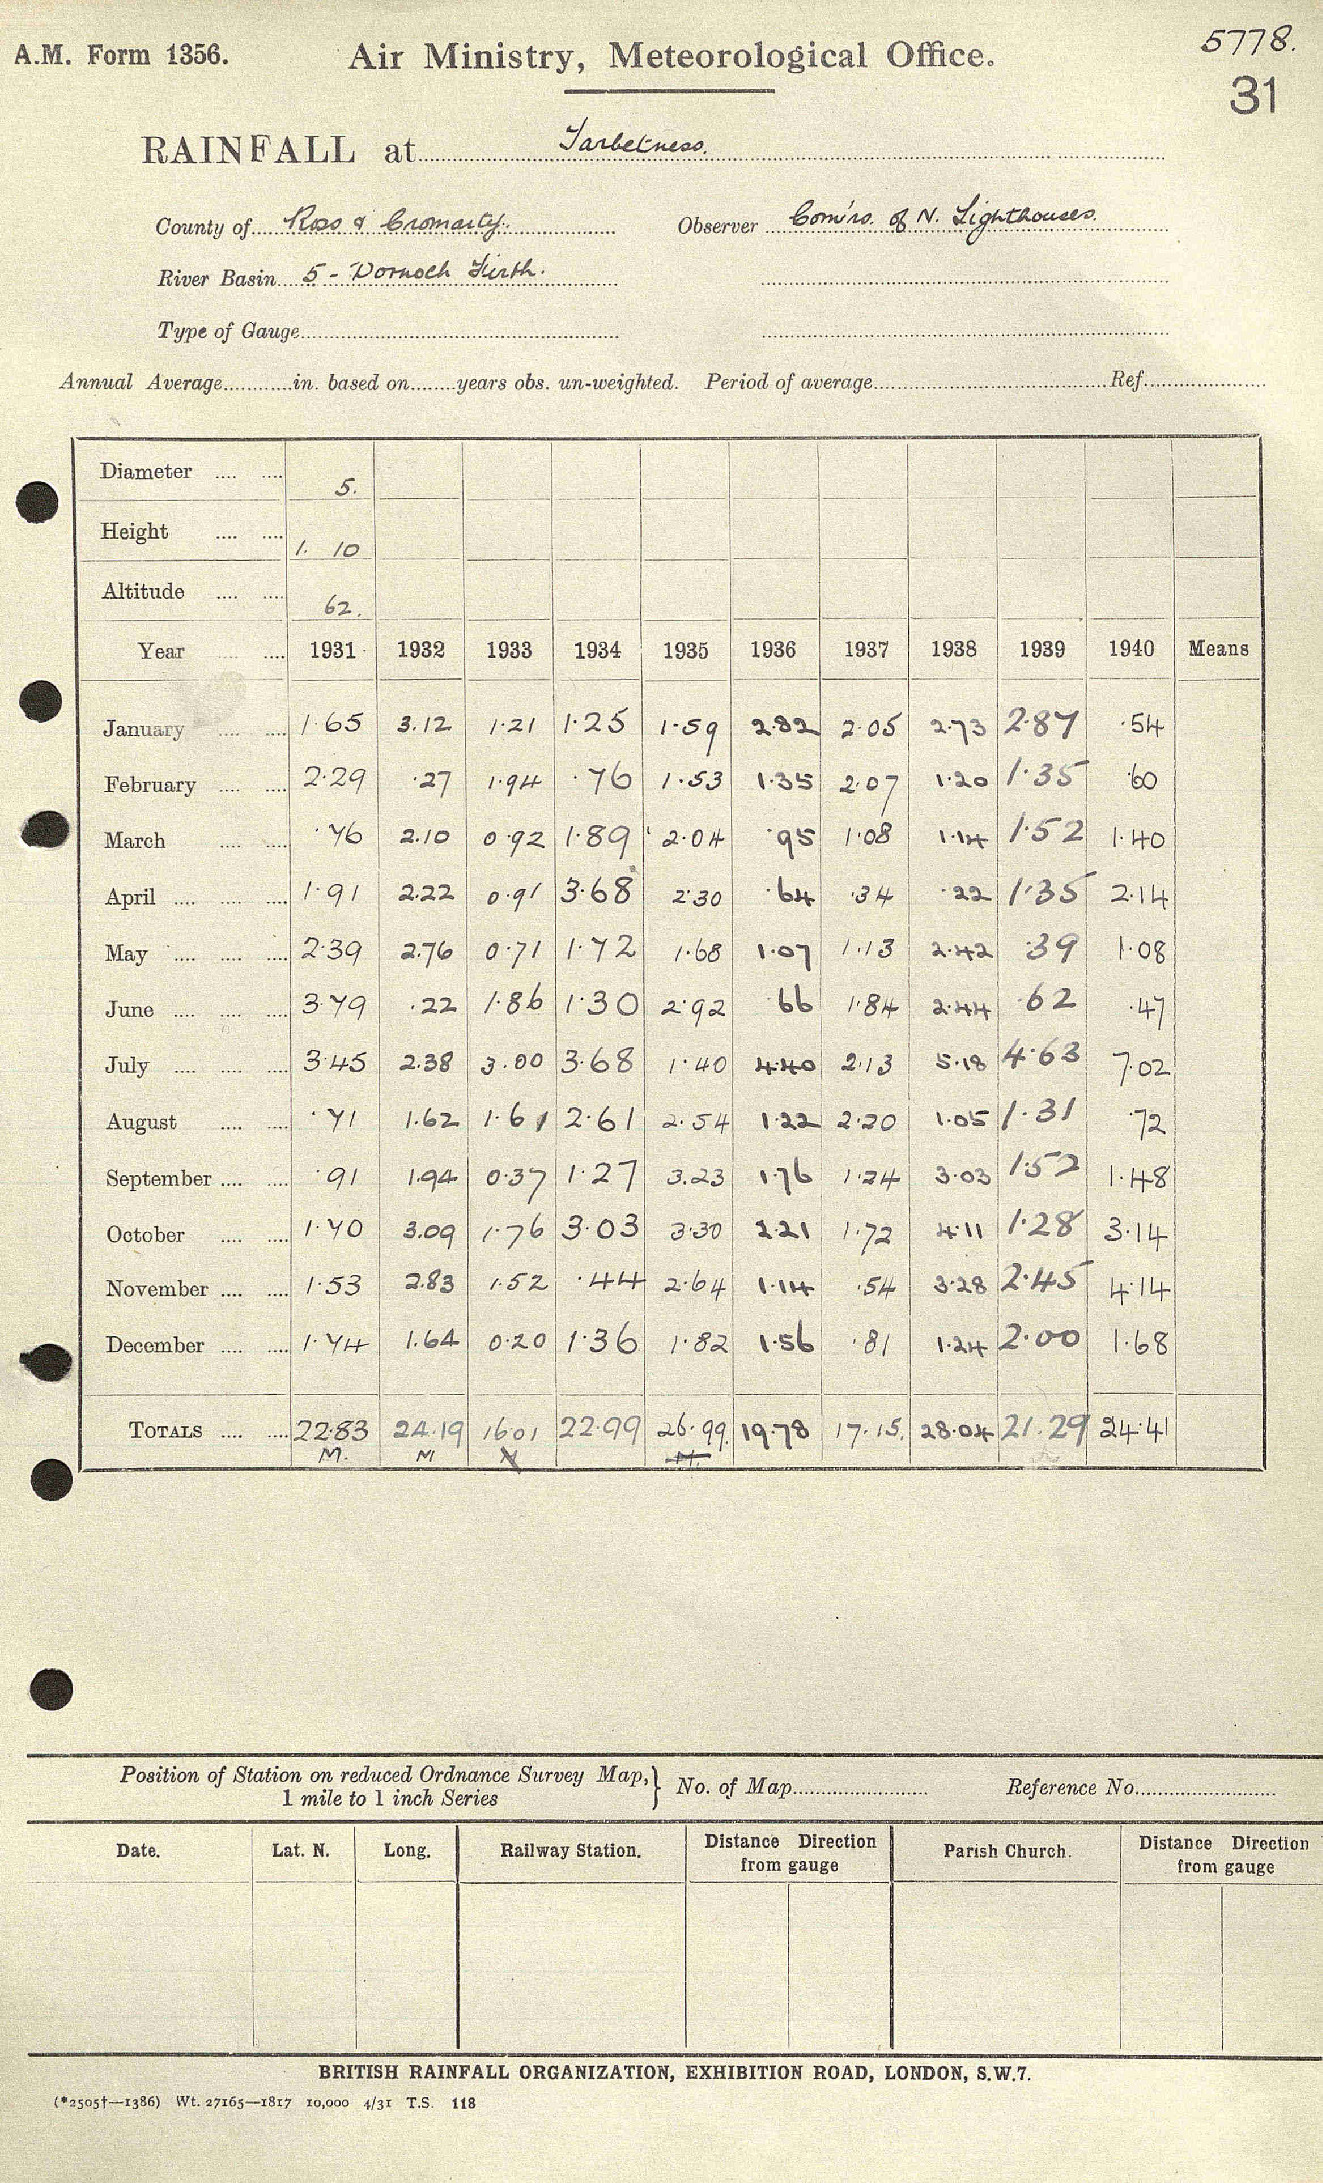 5778.
A.M. Form 1356. Air Ministry, Meteorological Office.
31
RAINFALL at Tarbetness.
County of Ross & Cromarty. Observer Com'rs. of N. Lighthouses.
River Basin 5 - Dornoch Firth.
Type of Gauge
Annual Average in. based on years obs. un-weighted. Period of average Ref.
Diameter 5.
Height 1. 10
Altitude 62.
Year 1931 1932 1933 1934 1935 1936 1937 1938 1939 1940 Means
January 1.65 3.12 1.21 1.25 1.59 2.82 2.05 2.73 2.87 .54
February 2.29 .27 1.94 .76 1.53 1.35 2.07 1.20 1.35 .60
March .76 2.10 0.92 1.89 2.04 .95 1.08 1.14 1.52 1.40
April 1.91 2.22 0.91 3.68 2.30 .64 .34 .22 1.35 2.14
May 2.39 2.76 0.71 1.72 1.68 1.07 1.13 2.42 .39 1.08
June 3.79 .22 1.86 1.30 2.92 .66 1.84 2.44 .62 .47
July 3.45 2.38 3.00 3.68 1.40 4.40 2.13 5.18 4.63 7.02
August .71 1.62 1.61 2.61 2.54 1.22 2.20 1.05 1.31 .72
September .91 1.94 0.37 1.27 3.23 1.76 1.24 3.03 1.52 1.48
October 1.70 3.09 1.76 3.03 3.30 2.21 1.72 4.11 1.28 3.14
November 1.53 2.83 1.52 .44 2.64 1.14 .54 3.28 2.45 4.14
December 1.74 1.64 0.20 1.36 1.82 1.56 .81 1.24 2.00 1.68
TOTALS 22.83 24.19 16.01 22.99 26.99 19.78 17.15 28.04 21.29 24.41
M. M M.
Position of Station on reduced Ordnance Survey Map, 1 mile to 1 inch Series } No. of Map Reference No.
Date. Lat. N. Long. Railway Station. Distance Direction from gauge Parish Church. Distance Direction from gauge
BRITISH RAINFALL ORGANIZATION, EXHIBITION ROAD, LONDON, S.W.7.
(*2505†—1386) Wt. 27165—1817 10,000 4/31 T.S. 118